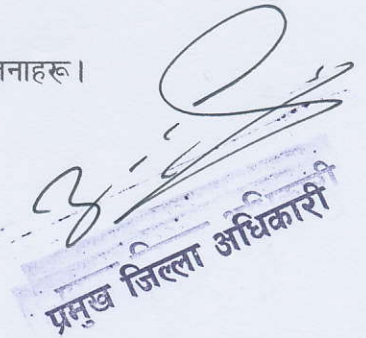 नाहरू।
प्रमुख जिल्ला अधिकारी